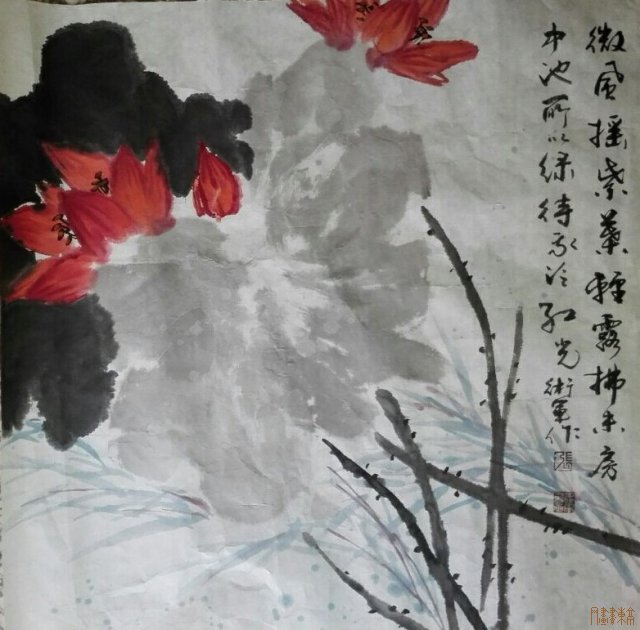 微風搖紫葉輕露拂朱房
中池所以绿待我泛红光 衛軍作
張